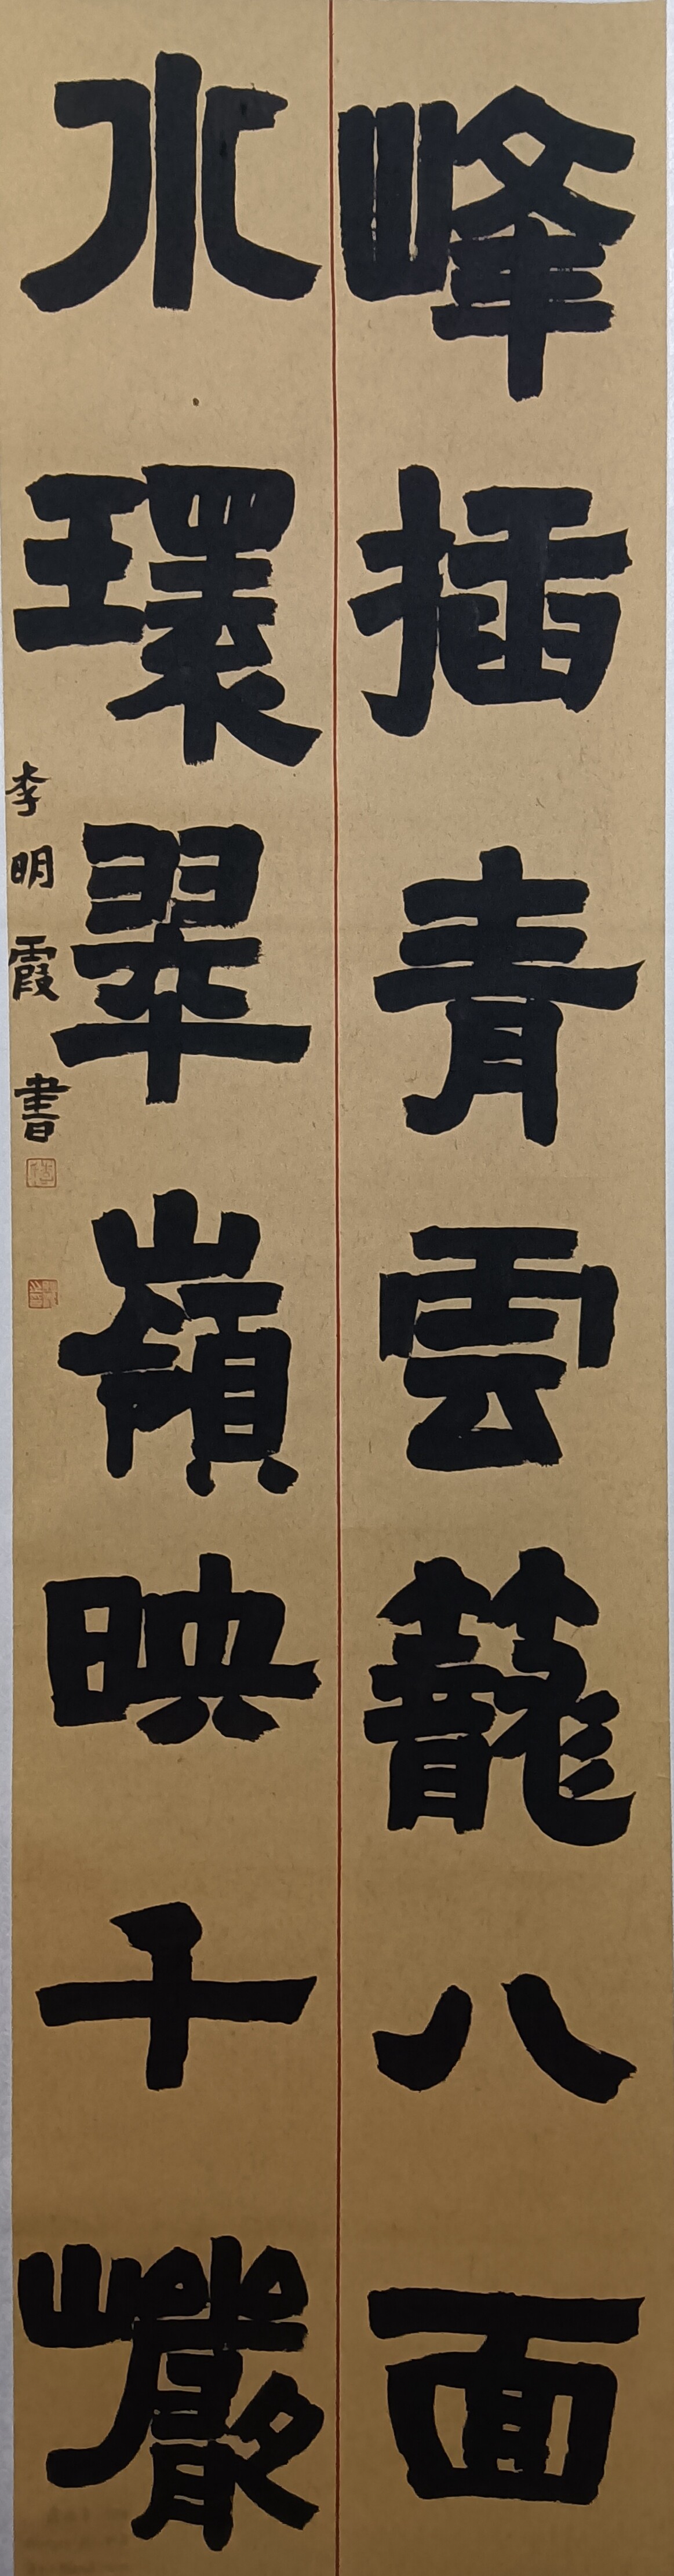 峰插青雲籠八面
水環翠嶺映千巖
李明霞書